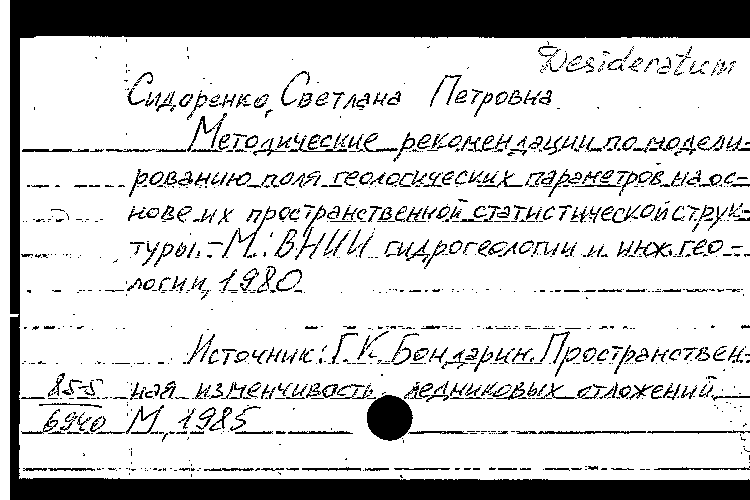 Desideratum
Сидоренко, Светлана Петровна
Методические рекомендации по модели-
рованию поля геологических параметров на ос-
нове их пространственной статистической струк-
туры. - М.: ВНИИ гидрогеологии и инж. гео-
логии, 1980
Источник: Г.К. Бондарик. Пространствен-
85-5 ная изменчивость ледниковых отложений
6940 М, 1985